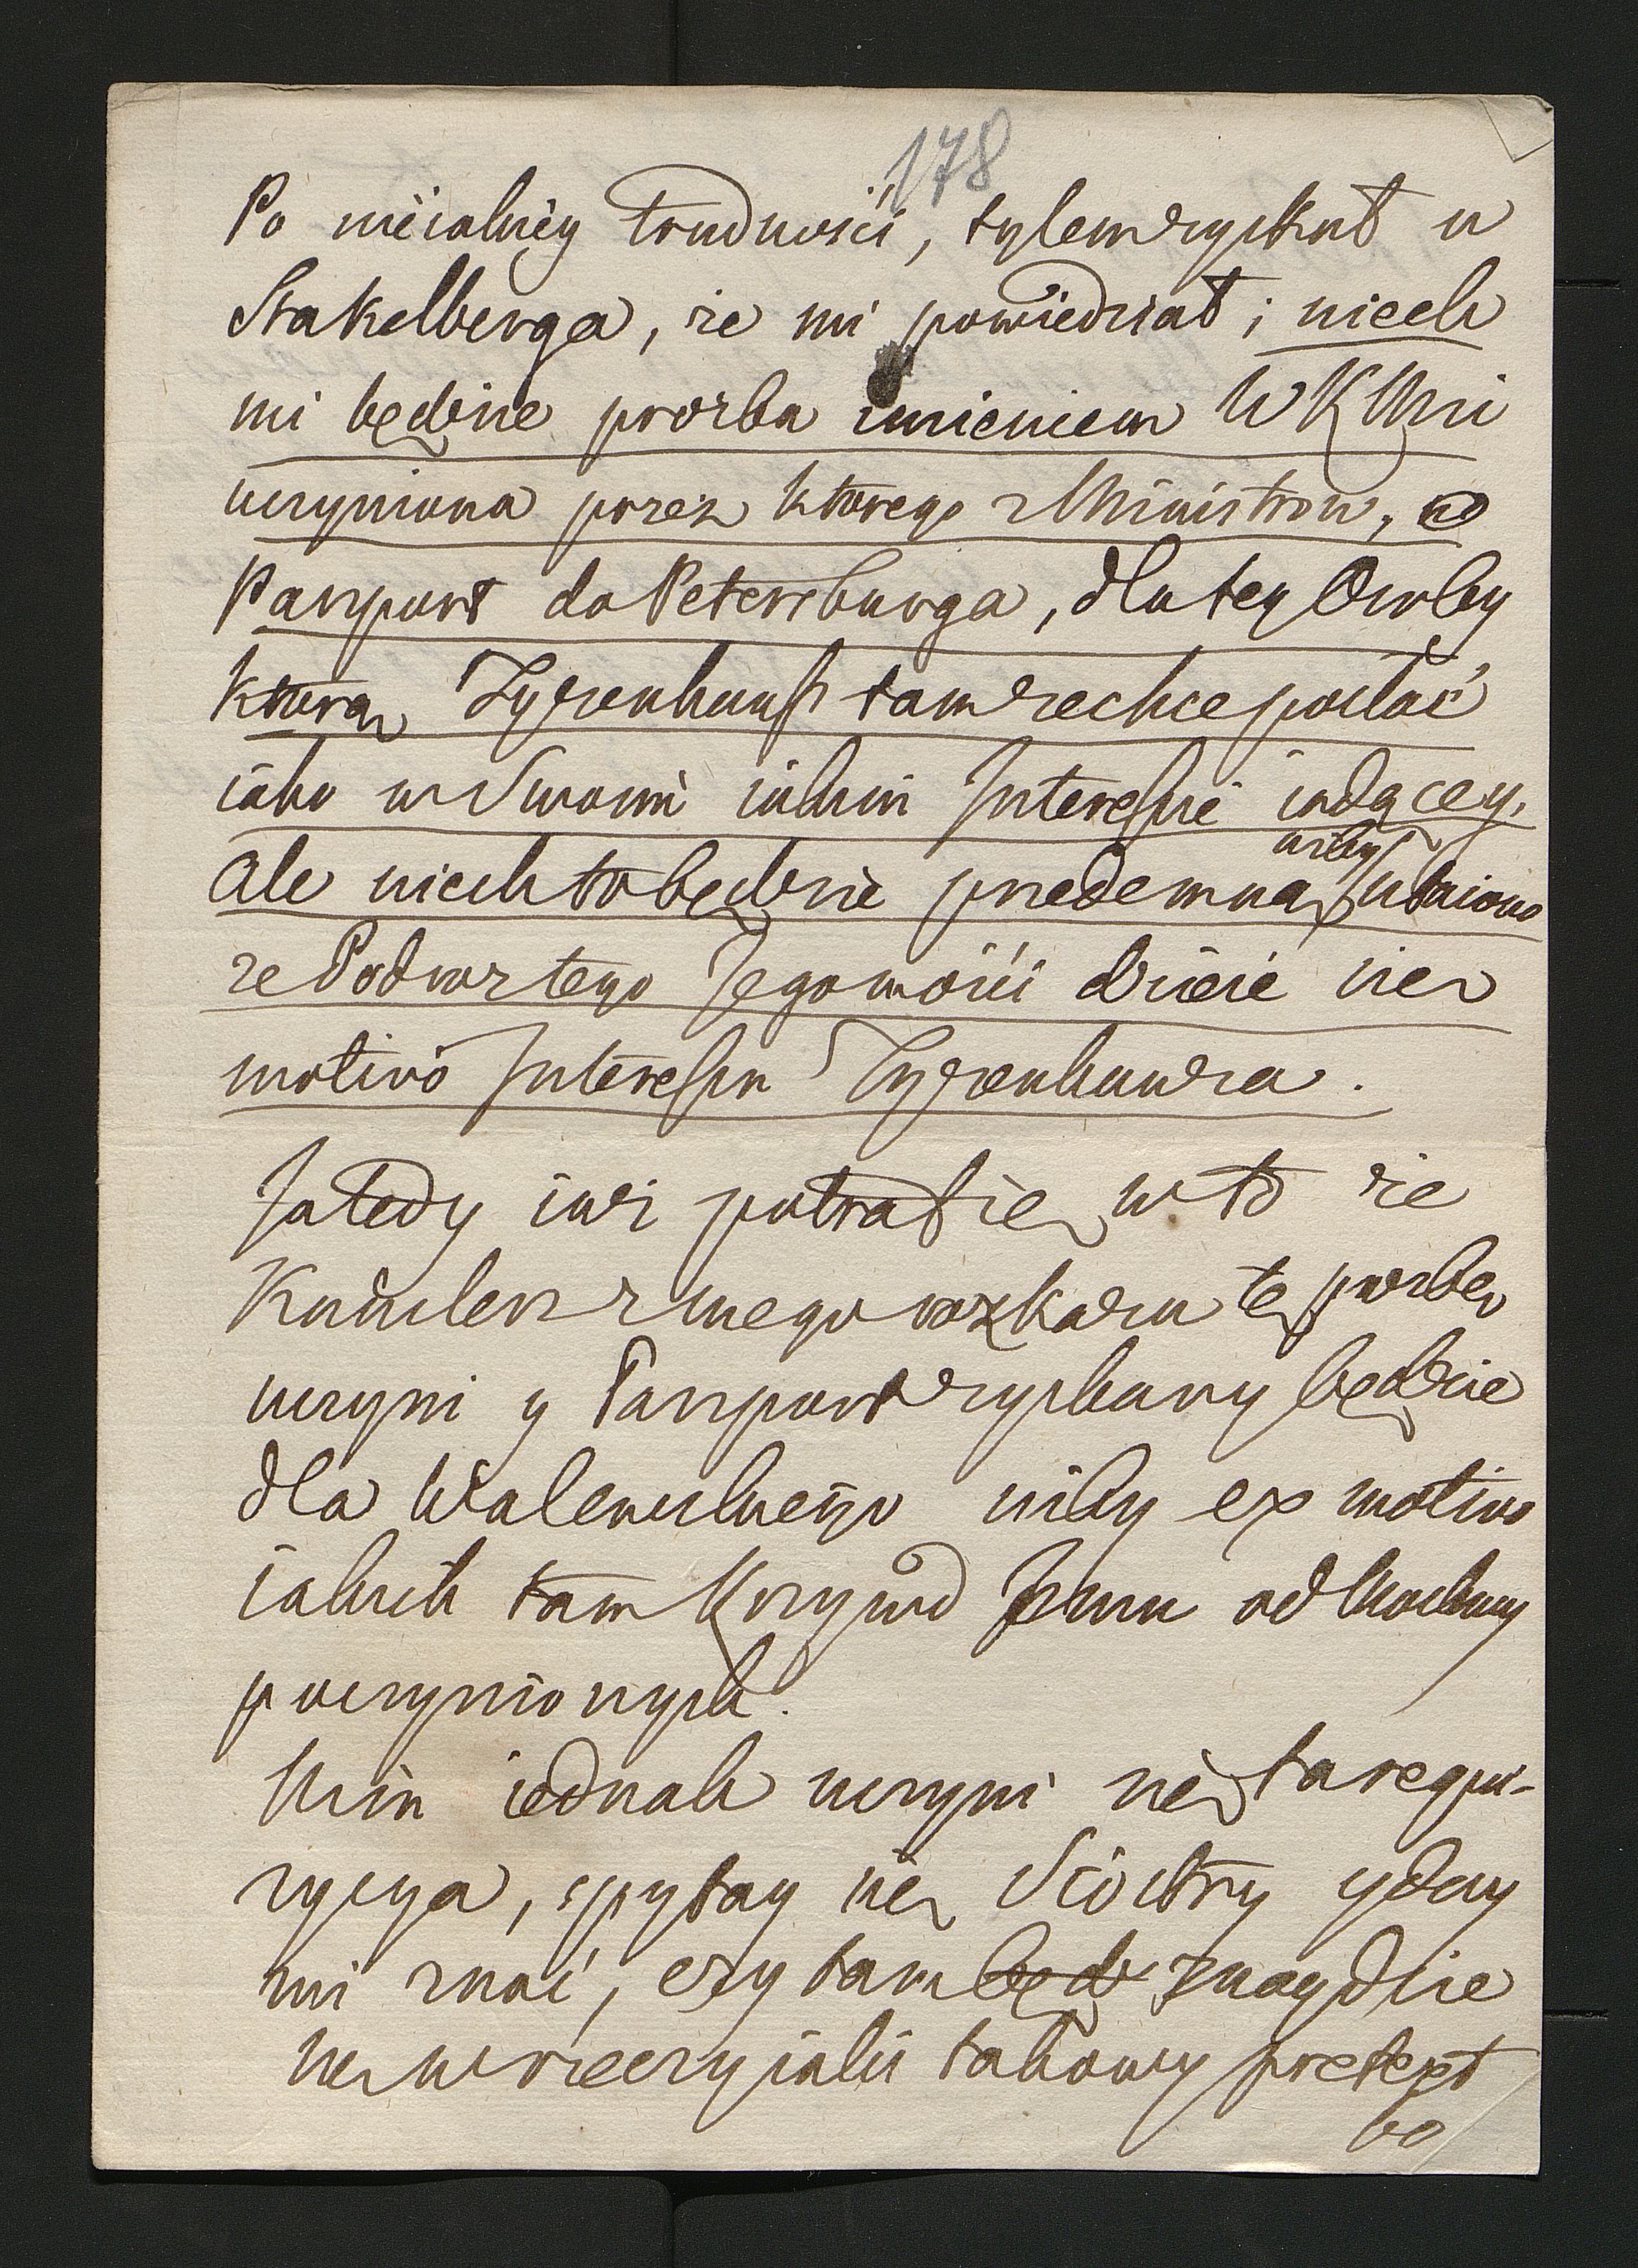 178
Po nieiakiey trudnosci, tylem zyskał u
Stakelberga, ze mi powiedział; niech
mi będzie prozba imieniem WKMci
uczyniona przez ktorego z Ministrow, o
Passport do Petersburga, dla tey Osoby
ktorą Tyzenhauß tam zechce posłać
iako w Swoim iakim Interessie iadącey,
niby
Ale niech to będzie przedemną utaiono
ze Podroz tego Jegomosci dzieie się
motivo Interessu Tyzenhauza.
Ja tedy iuz potrafię w to ze
Kanclerz z mego rozkazu tę prozbę
uczyni y Passport zyskany będzie
dla Walewskiego niby ex motivo
iakich tam Krzywd Jemu od Moskwy
poczynionych.
Nim iednak uczyni się ta requi-
zycya, spytay się Siostry y day
mi znać, czy tam będz znaydzie
się w rzeczy iakis takowy pretext
bo